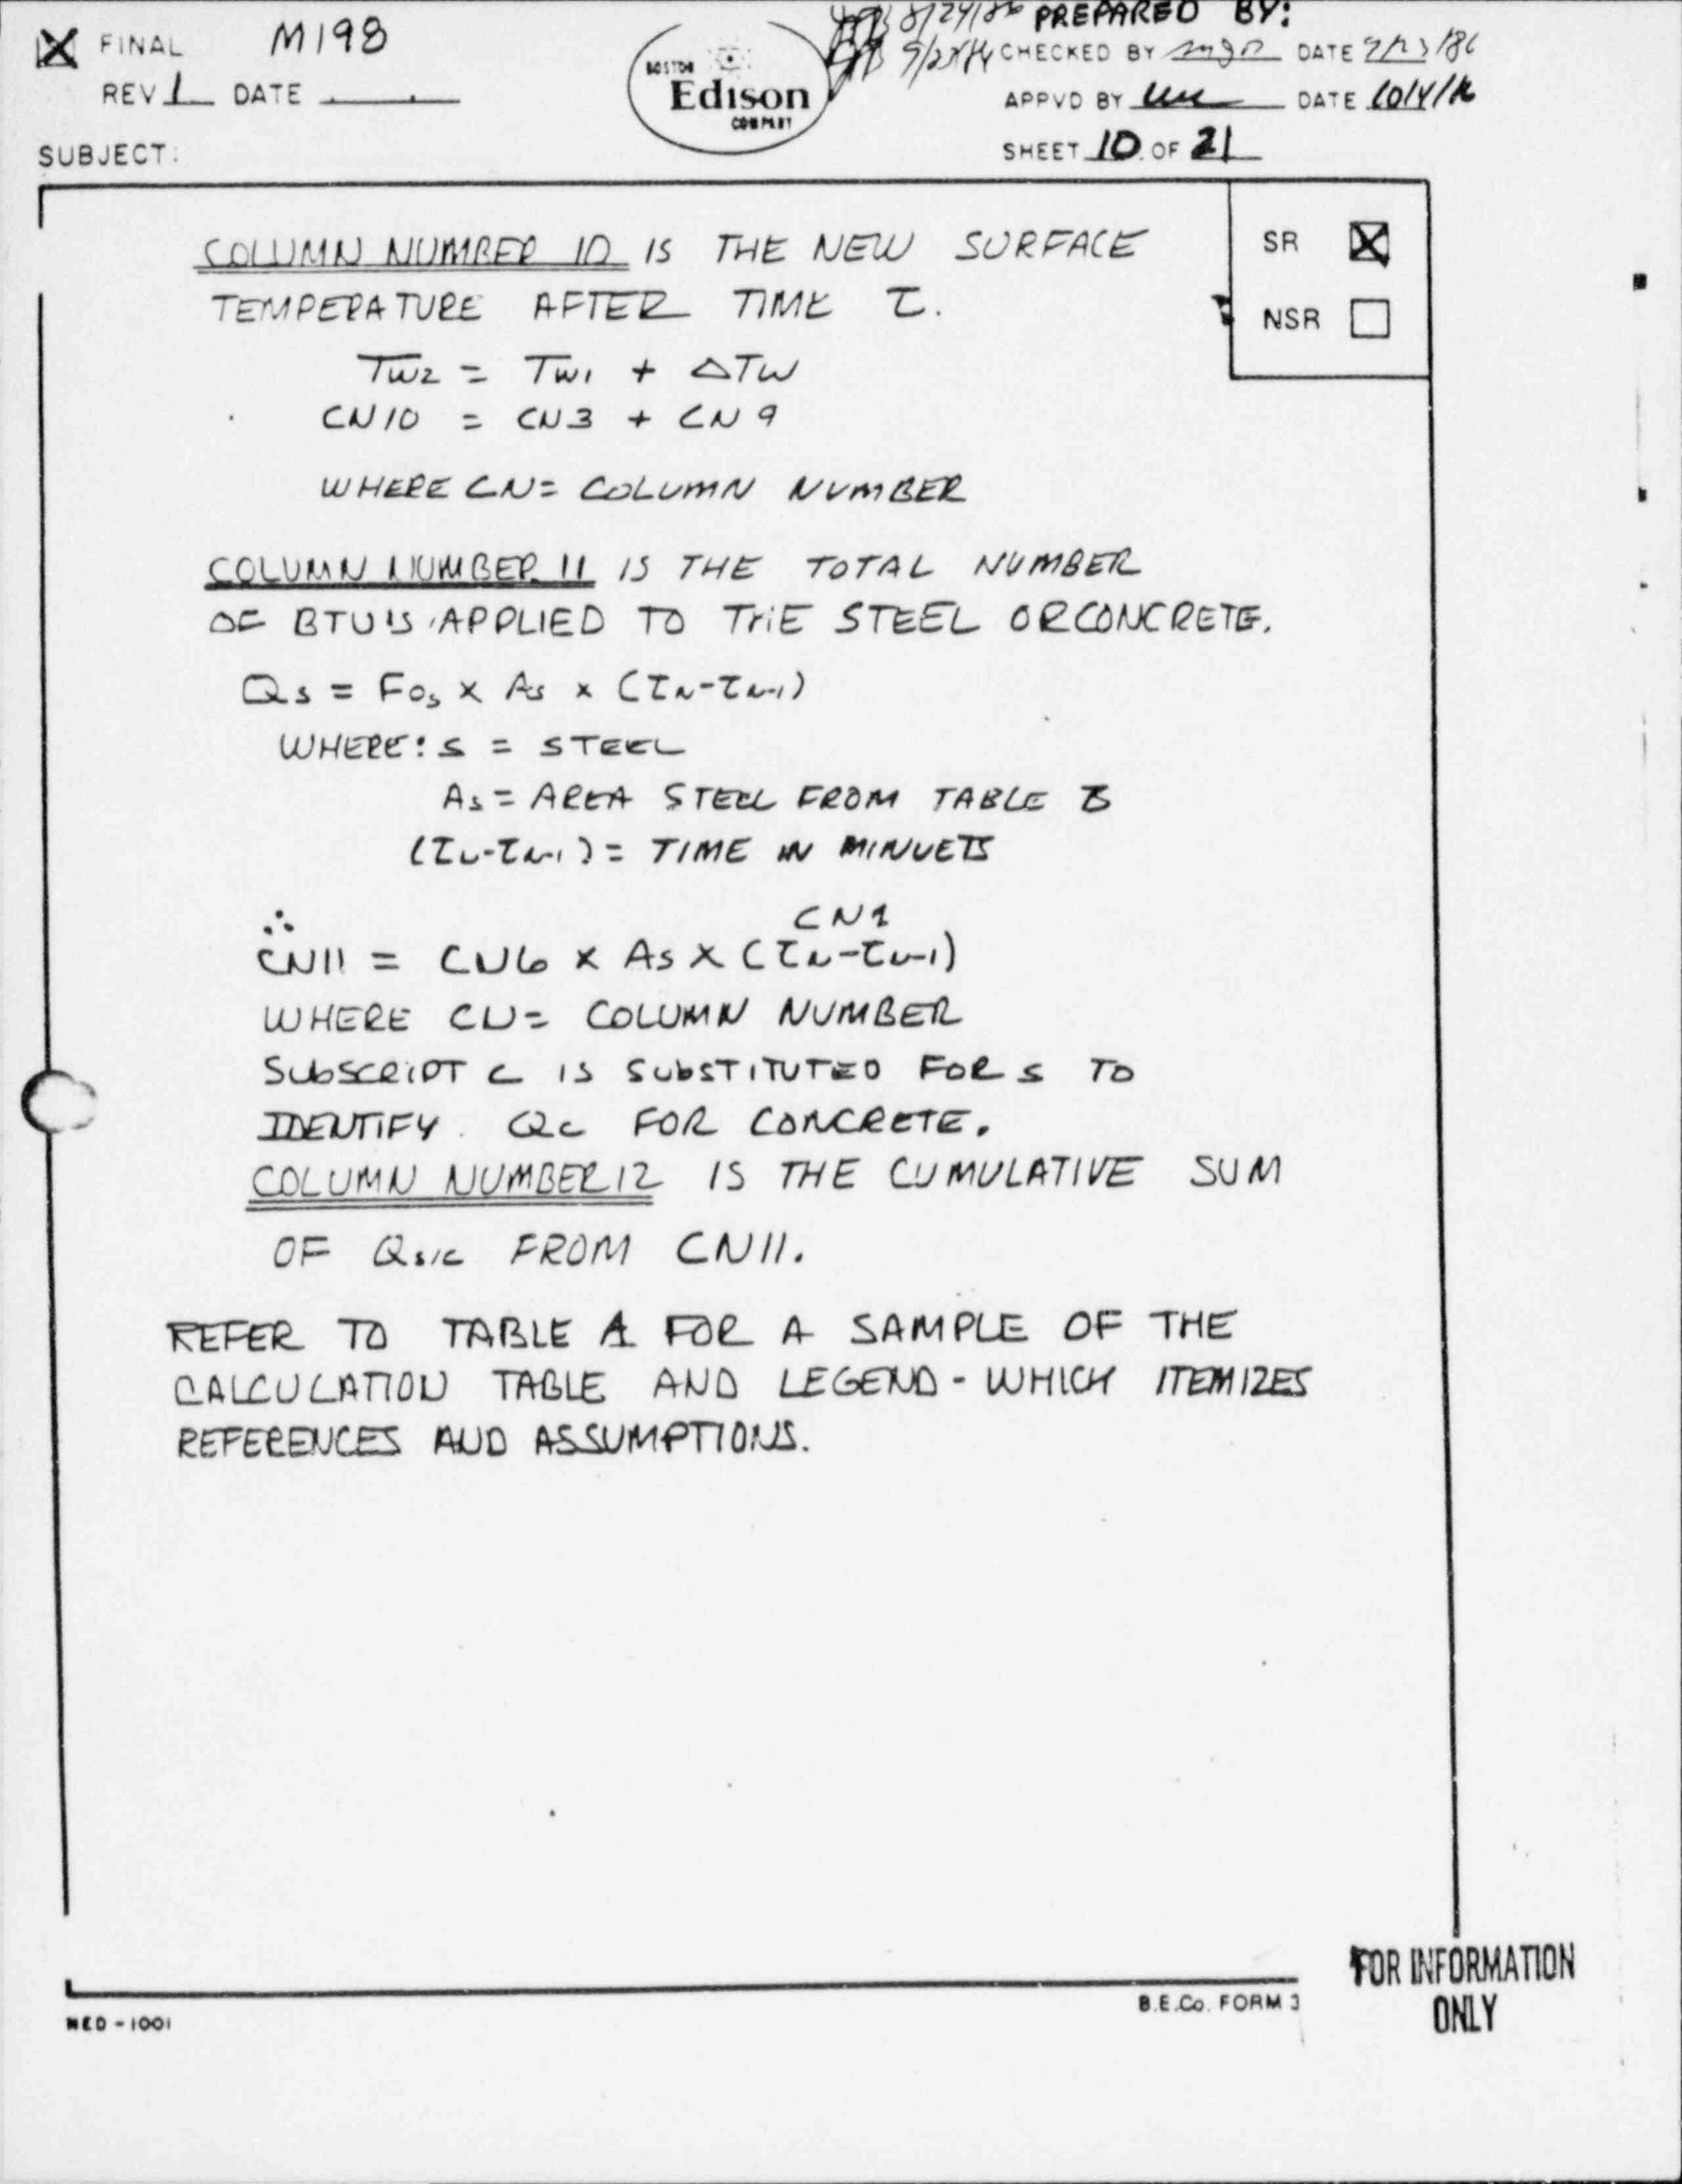 FINAL M198
REV 1 DATE
SUBJECT:
BOSTON
Edison
COMPANY
8/24/86 PREPARED BY:
CHECKED BY DATE
APPVD BY DATE
SHEET 10 OF 21
SR
NSR
COLUMN NUMBER 10 IS THE NEW SURFACE
TEMPERATURE AFTER TIME τ.
TW2 = TW1 + ΔTW
CN10 = CN3 + CN9
WHERE CN= COLUMN NUMBER
COLUMN NUMBER 11 IS THE TOTAL NUMBER
OF BTU'S APPLIED TO THE STEEL OR CONCRETE.
Qs = Fos x As x (τN-τN-1)
WHERE: S = STEEL
As = AREA STEEL FROM TABLE B
(τN-τN-1) = TIME IN MINUETS
CN1
∴ CN11 = CN6 x As x (τN-τN-1)
WHERE CN= COLUMN NUMBER
SUBSCRIPT C IS SUBSTITUTED FOR S TO
IDENTIFY Qc FOR CONCRETE.
COLUMN NUMBER 12 IS THE CUMULATIVE SUM
OF Qs/c FROM CN11.
REFER TO TABLE A FOR A SAMPLE OF THE
CALCULATION TABLE AND LEGEND - WHICH ITEMIZES
REFERENCES AND ASSUMPTIONS.
NED-1001
B.E.Co. FORM 3
FOR INFORMATION
ONLY